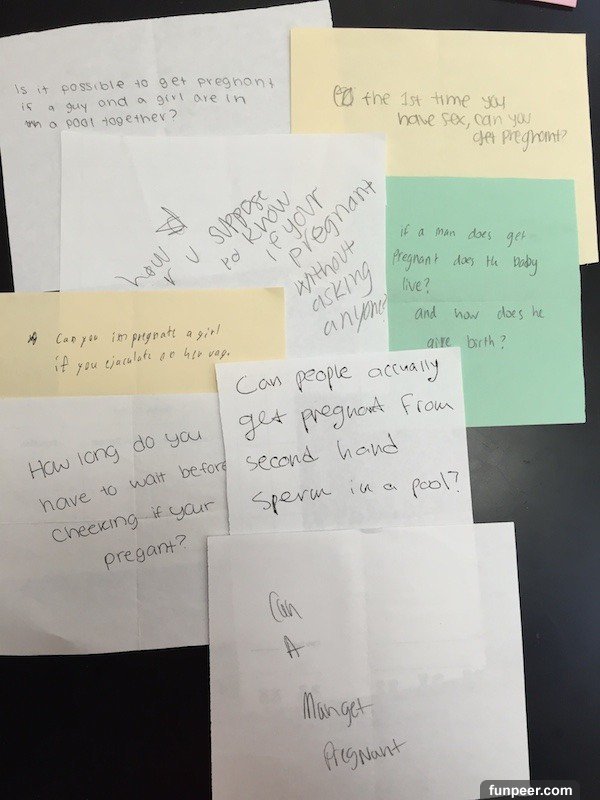 Is it possible to get pregnant
if a guy and a girl are in
a pool together?
the 1st time you
have sex, can you
get pregnant?
how
r u suppose
to know
if your
pregnant
without
asking
anyone?
if a man does get
pregnant does the baby
live?
and how does he
give birth?
Can you impregnate a girl
if you ejaculate on her vag.
Can people accually
get pregnant from
second hand
sperm in a pool?
How long do you
have to wait before
checking if your
pregant?
Can
A
Man get
Pregnant
funpeer.com